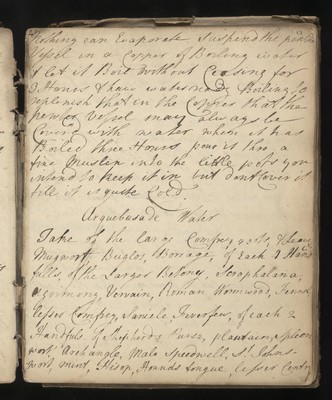 Nothing can Evaporate Suspend the pewter
Vessel in a Copper of Boiling water
& let it Boil without Ceasing for
3 Hours & have water ready Boiling to
replenish that in the Copper that the
pewter Vessel may always be
Cover'd with water when it has
Boiled three Hours pour it thro a
fine Muslen into the little pots you
intend to keep it in but dont Cover it
till it is quite Cold.
Arquebusade Water
Take of the large Comfrey roots, & leaves
Mugwort, Buglos, Borrage, of each 3 Hand
fulls, of the Larger Betony, Scrophelaria,
Agormony, Vervain, Roman Wormwood, Fennel
lesser Comfrey, Sanicle, Feverfew, of each 2
Handfuls, of Shepherds Purse, plantain, Spleen
wort, Archangle, Male Speedwell, St. Johns-
wort, mint, Hisop, Hounds tongue, lesser Centry